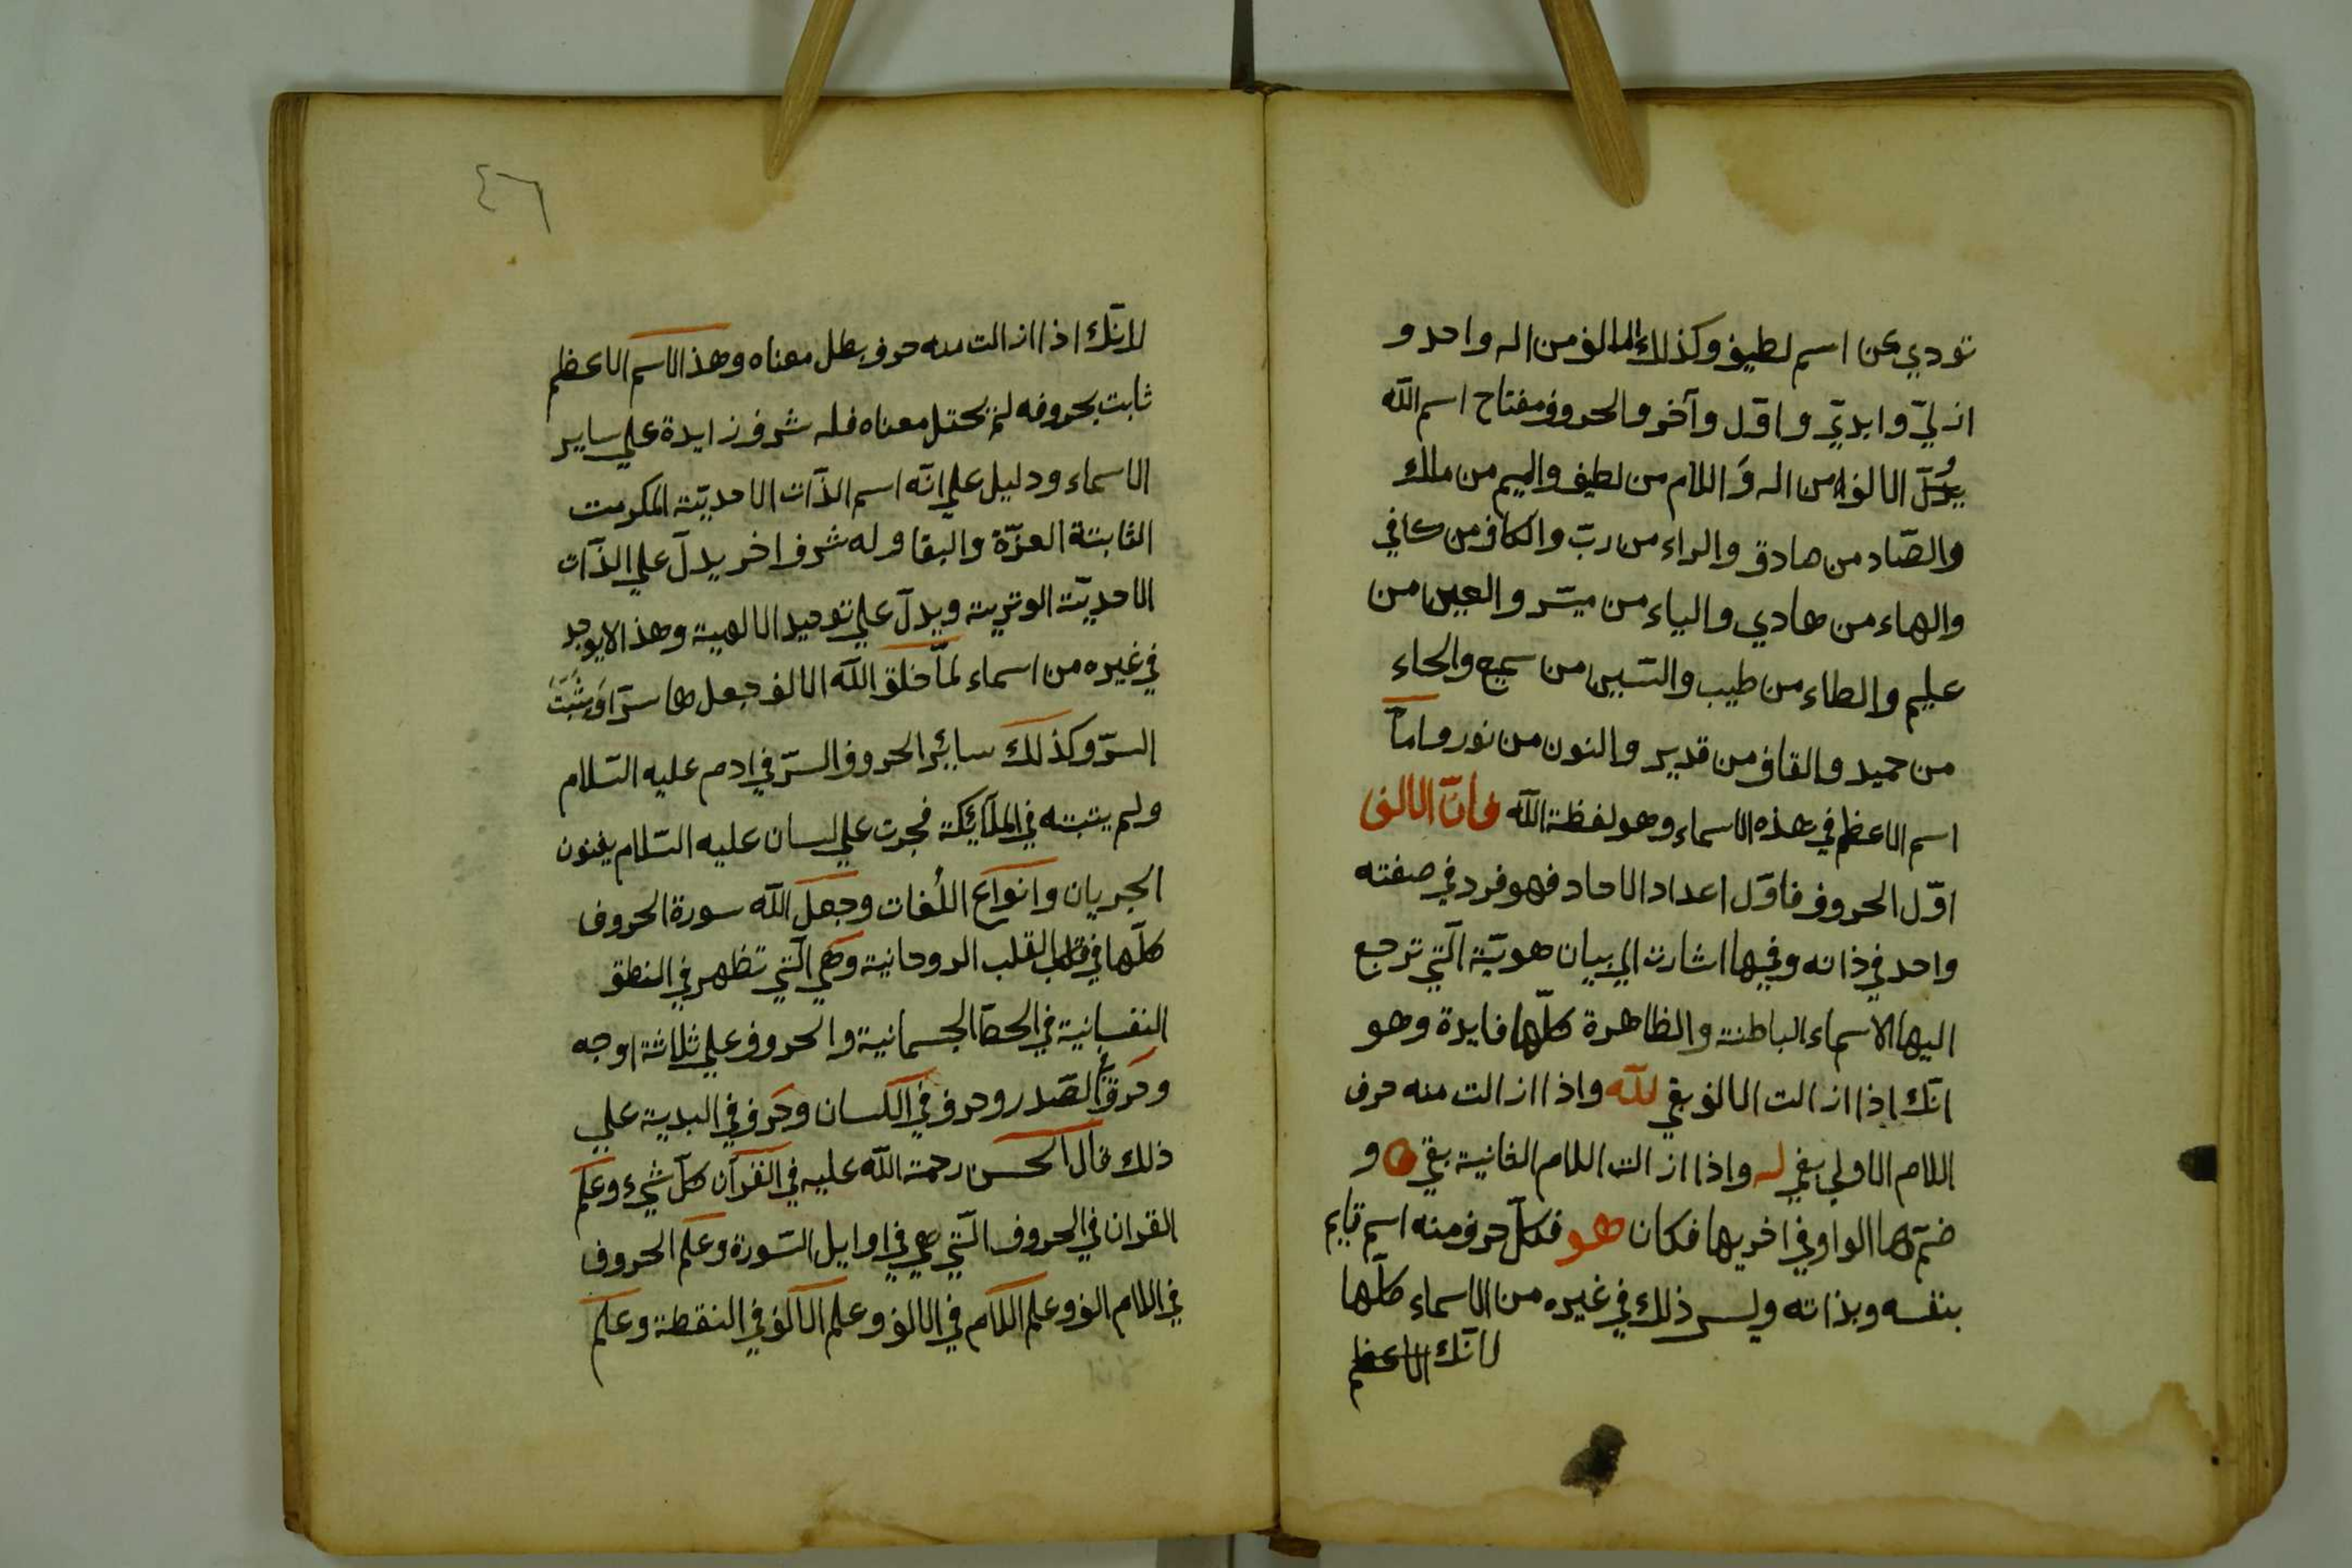 تودي عن اسم لطيف وكذلك الالف من اله واحد و
ازليّ وابديّ واوّل وآخر والحروف مفتاح اسم اللّه
يُدلّ الالف من اله وَ اللام من لطيف والميم من ملك
والصّاد من صادق والراء من ربّ والكاف من كافي
والهاء من هادي والياء من ميسّر والعين من
عليم والطاء من طيب والسّين من سميع والحاء
من حميد والقاف من قدير والنون من نور وامّا
اسم الاعظم في هذه الاسماء وهو لفظة اللّه فانّ الالف
اوّل الحروف فاوّل اعداد الاحاد فهو فرد في صفته
واحد في ذاته وفيها اشارت الي بيان هويّة الّتي ترجع
اليها الاسماء الباطنة والظاهرة كلّها فايدة وهو
انّك اذا ازالت الالف بقي للّه واذا ازالت منه حرف
اللام الاولي بقي له واذا ازالت اللام الثانية بقي ه و
ضمّ ها الواو في اخريها فكان هو فكلّ حرف منه اسم قايم
بنفسه وبذاته وليس ذلك في غيره من الاسماء كلّها
لانّك الاعظم
٤٦
لانّك اذا ازالت منه حرف بطل معناه وهذا الاسم الاعظم
ثابت بحروفه لم يختل معناه فله شرف زايدة علي ساير
الاسماء ودليل علي انّه اسم الذّات الاحديّة المكرمت
الثابتة العزّة والبقا وله شرف اخر يدلّ علي الذّات
الاحديّة الوترية ويدلّ علي توحيد الالهية وهذا لا يوجد
في غيره من اسماء لمّا خلق اللّه الالف جعل ها سرّا وَيثبتَ
السرّ وكذلك سائر الحروف السرّ في ادم عليه السّلام
ولم يثبته في الملآئكة فجرت علي لسان عليه السّلام بفنون
الجريان وانواع اللُغات وجعل اللّه سورة الحروف
كلّها في القلب الروحانية وهي الّتي تظهر في النطق
النفسانية في الحصّا الجسمانية والحروف علي ثلاثة اوجه
وحرف في الصّدر وحرف في اللسان وحرف في البدية علي
ذلك قال الحسن رحمة اللّه عليه في القرآن كلّ شيء وعلم
القران في الحروف الّتي هي في اوايل السّورة وعلم الحروف
في اللام الف وعلم اللام في الالف وعلم الالف في النقطة وعلم